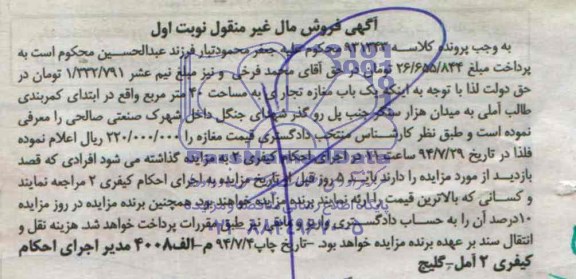 آگهی فروش مال غیر منقول نوبت اول
به وجب پرونده کلاسه ۹۳۱۳۳۳ محکوم علیه جعفر محمودتبار فرزند عبدالحسین محکوم است به
پرداخت مبلغ ۲۶/۶۵۵/۸۴۴ تومان در حق آقای محمد فرخی و نیز مبلغ نیم عشر ۱/۳۳۲/۷۹۱ تومان در
حق دولت لذا با توجه به اینکه یک باب مغازه تجاری به مساحت ۴۰ متر مربع واقع در ابتدای کمربندی
طالب آملی به میدان هزار سنگر جنب پل رو گذر شهدای جنگل داخل شهرک صنعتی صالحی را معرفی
نموده است و طبق نظر کارشناس منتخب دادگستری قیمت مغازه را ۲۲۰/۰۰۰/۰۰۰ ریال اعلام نموده
فلذا در تاریخ ۹۴/۷/۲۹ ساعت ۱۱ در اجرای احکام کیفری ۲ به مزایده گذاشته می شود افرادی که قصد
بازدید از مورد مزایده را دارند بایستی ۵ روز قبل از تاریخ مزایده به اجرای احکام کیفری ۲ مراجعه نمایند
و کسانی که بالاترین قیمت را ارئه نمایند برنده مزایده خواهند بود. همچنین برنده مزایده در روز مزایده
۱۰درصد آن را به حساب دادگستری واریز و مابقی نیز طبق مقررات پرداخت خواهد شد. هزینه نقل و
انتقال سند بر عهده برنده مزایده خواهد بود. -تاریخ چاپ۹۴/۷/۴ م-الف۴۰۰۸ مدیر اجرای احکام
کیفری ۲ آمل-گلیج